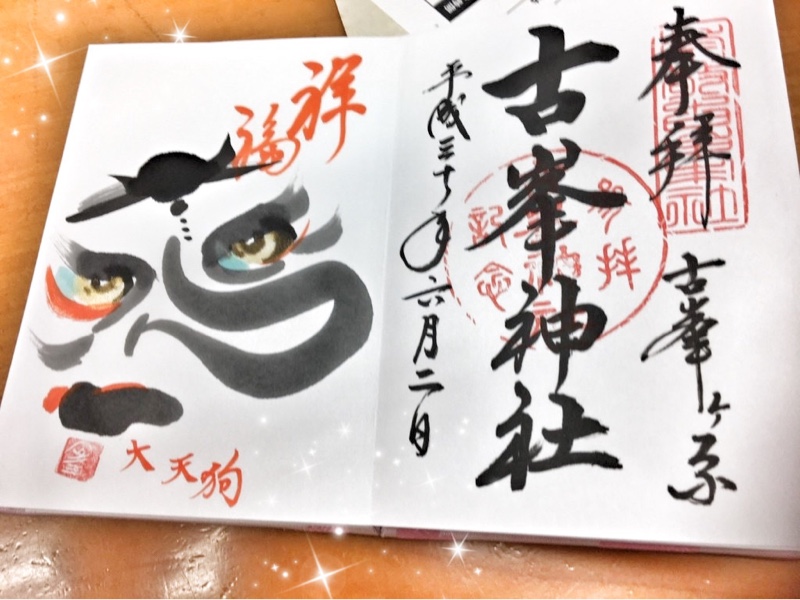 奉拝
古峯ヶ原
古峯神社
平成三十年六月二日
祥福
大天狗
記念